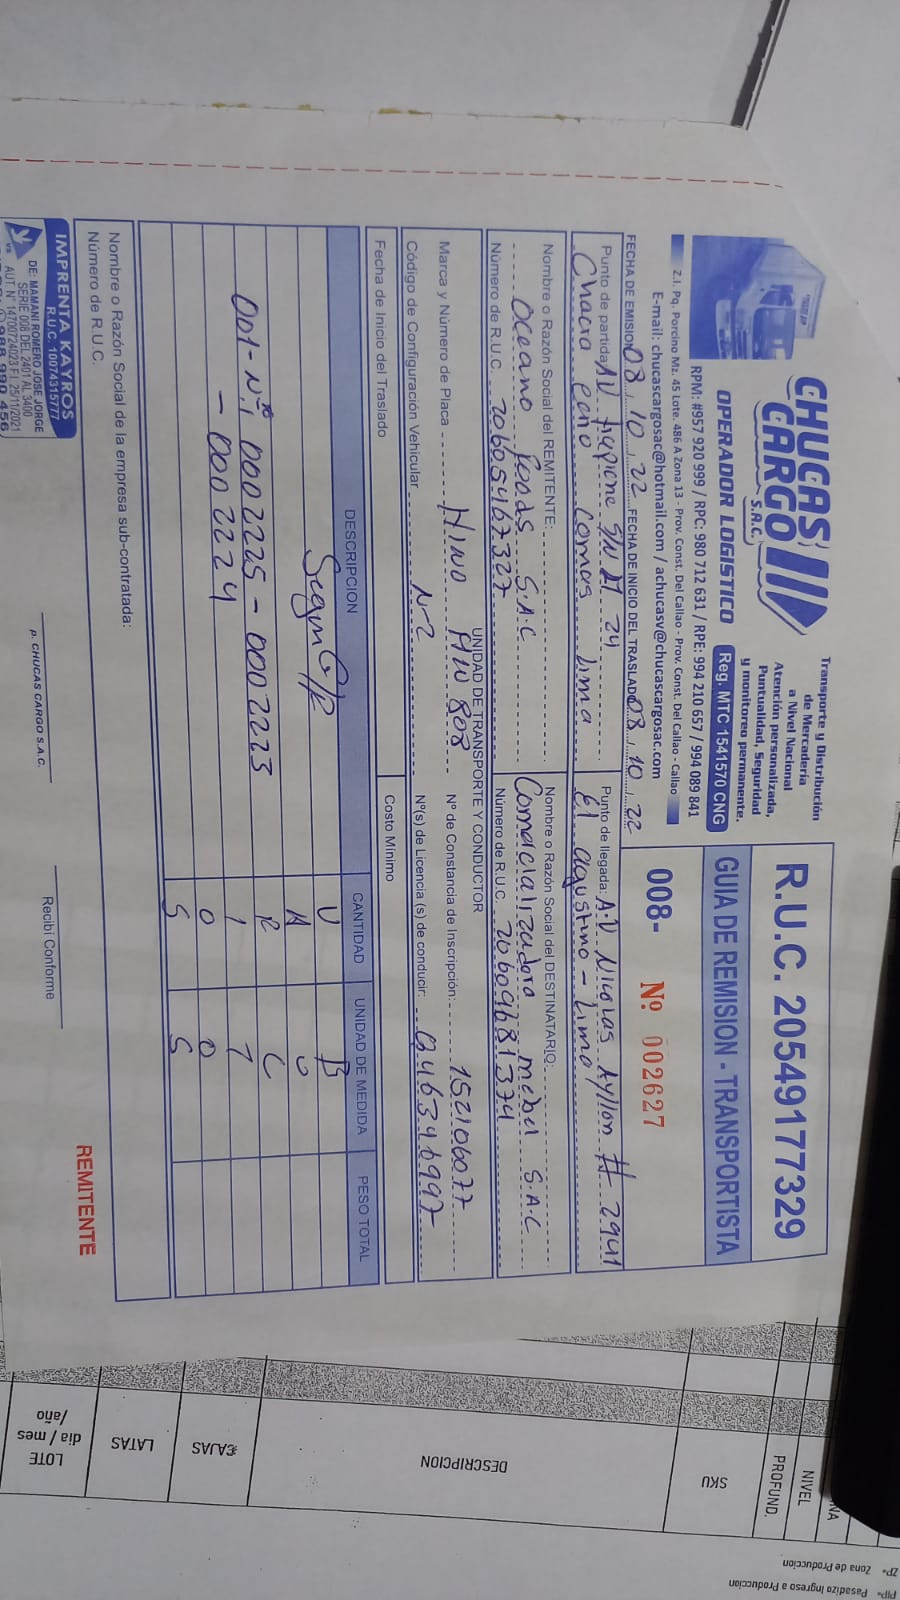 CHUCAS
CARGO
S.A.C.
OPERADOR LOGISTICO
Transporte y Distribución
de Mercadería
a Nivel Nacional
Atención personalizada,
Puntualidad, Seguridad
y monitoreo permanente.
Reg. MTC 1541570 CNG
RPM: #957 920 999 / RPC: 980 712 631 / RPE: 994 210 657 / 994 089 841
E-mail: chucascargosac@hotmail.com / achucasv@chucascargosac.com
Z.I. Pq. Porcino Mz. 45 Lote. 486 A Zona 13 - Prov. Const. Del Callao - Prov. Const. Del Callao - Callao
R.U.C. 20549177329
GUIA DE REMISION - TRANSPORTISTA
008- Nº 002627
FECHA DE EMISION 08 / 10 / 22 FECHA DE INICIO DEL TRASLADO 08 / 10 / 22
Punto de partida: AV
Chacra Lima
Punto de llegada: A.V Nicolas Ayllon # 2941
El agustino - Lima
Nombre o Razón Social del REMITENTE:
oceano foods S.A.C
Número de R.U.C. 20605467327
Nombre o Razón Social del DESTINATARIO:
mebel S.A.C
Número de R.U.C. 20609681374
UNIDAD DE TRANSPORTE Y CONDUCTOR
Marca y Número de Placa HINO 808
Nº de Constancia de Inscripción: 152106077
Código de Configuración Vehicular N-2
Nº(s) de Licencia (s) de conducir:
Fecha de Inicio del Traslado
Costo Mínimo
DESCRIPCION CANTIDAD UNIDAD DE MEDIDA PESO TOTAL
Segun G/R U B
A U
001-Nº 0002225 - 0002223 R C
- 0002224 1 1
0 0
S S
Nombre o Razón Social de la empresa sub-contratada:
Número de R.U.C.
IMPRENTA KAYROS
R.U.C. 10074315777
DE: MAMANI ROMERO JOSE JORGE
SERIE 008 DEL 2401 AL 3400
AUT. Nº 14700724023 F.I. 25/11/2021
P. CHUCAS CARGO S.A.C.
Recibí Conforme
REMITENTE
NIVEL
PROFUND.
SKU
DESCRIPCION
CAJAS
LATAS
LOTE
dia / mes
/año
ZP= Zona de Produccion
PIP= Pasadizo Ingreso a Produccion